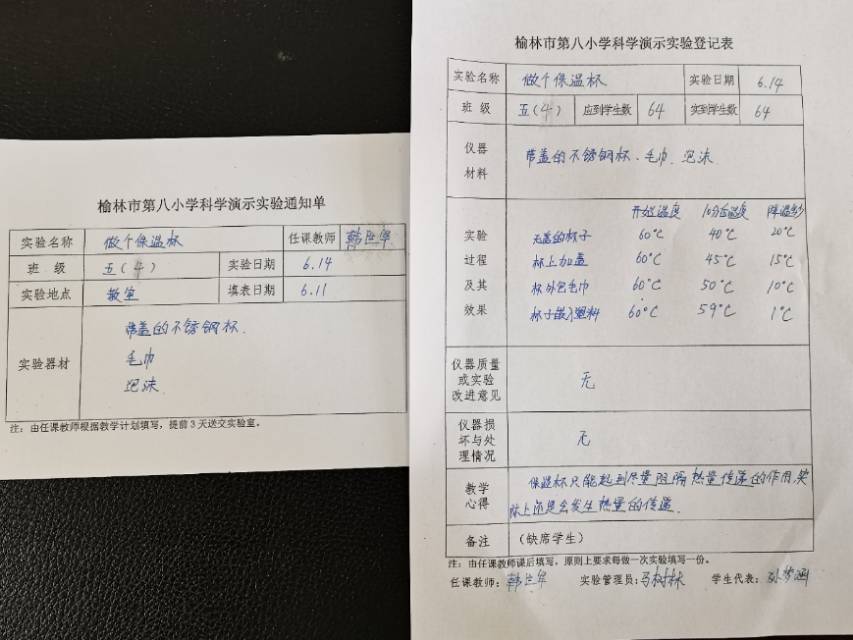 榆林市第八小学科学演示实验通知单
实验名称 做个保温杯 任课教师 韩世华
班 级 五(4) 实验日期 6.14
实验地点 教室 填表日期 6.11
实验器材
带盖的不锈钢杯.
毛巾
泡沫
注：由任课教师根据教学计划填写，提前3天送交实验室。
榆林市第八小学科学演示实验登记表
实验名称 做个保温杯 实验日期 6.14
班 级 五(4) 应到学生数 64 实到学生数 64
仪器材料 带盖的不锈钢杯、毛巾、泡沫
实验过程及其效果
开始温度 10分后温度 降温
无盖的杯子 60℃ 40℃ 20℃
杯上加盖 60℃ 45℃ 15℃
杯外包毛巾 60℃ 50℃ 10℃
杯子嵌入塑料 60℃ 59℃ 1℃
仪器质量或实验改进意见 无
仪器损坏与处理情况 无
教学心得 保温杯只能起到尽量阻隔热量传递的作用,实
际上还是会发生热量的传递.
备注 (缺席学生)
注：由任课教师课后填写，原则上要求每做一次实验填写一份。
任课教师：韩世华 实验管理员:马树林 学生代表：孙梦涵